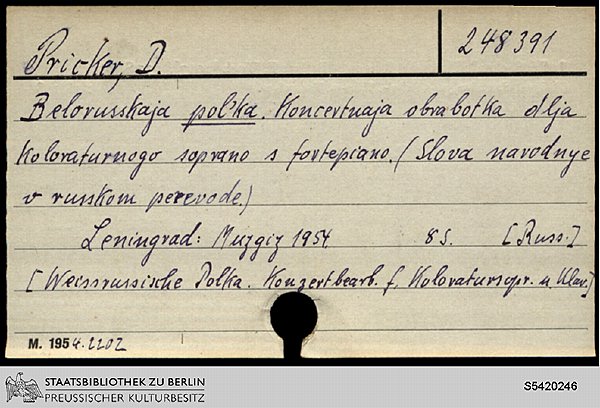 Pricker, D.
248391
Belorusskaja pol'ka. Koncertnaja obrabotka dlja
koloraturnogo soprano s fortepiano. (Slova narodnye
v russkom perevode.)
Leningrad: Muzgiz 1954. 8 S. [Russ.]
[Weissrussische Polka. Konzertbearb. f. Koloratursopr. u. Klav.]
M. 1954.2202
STAATSBIBLIOTHEK ZU BERLIN
PREUSSISCHER KULTURBESITZ
S5420246